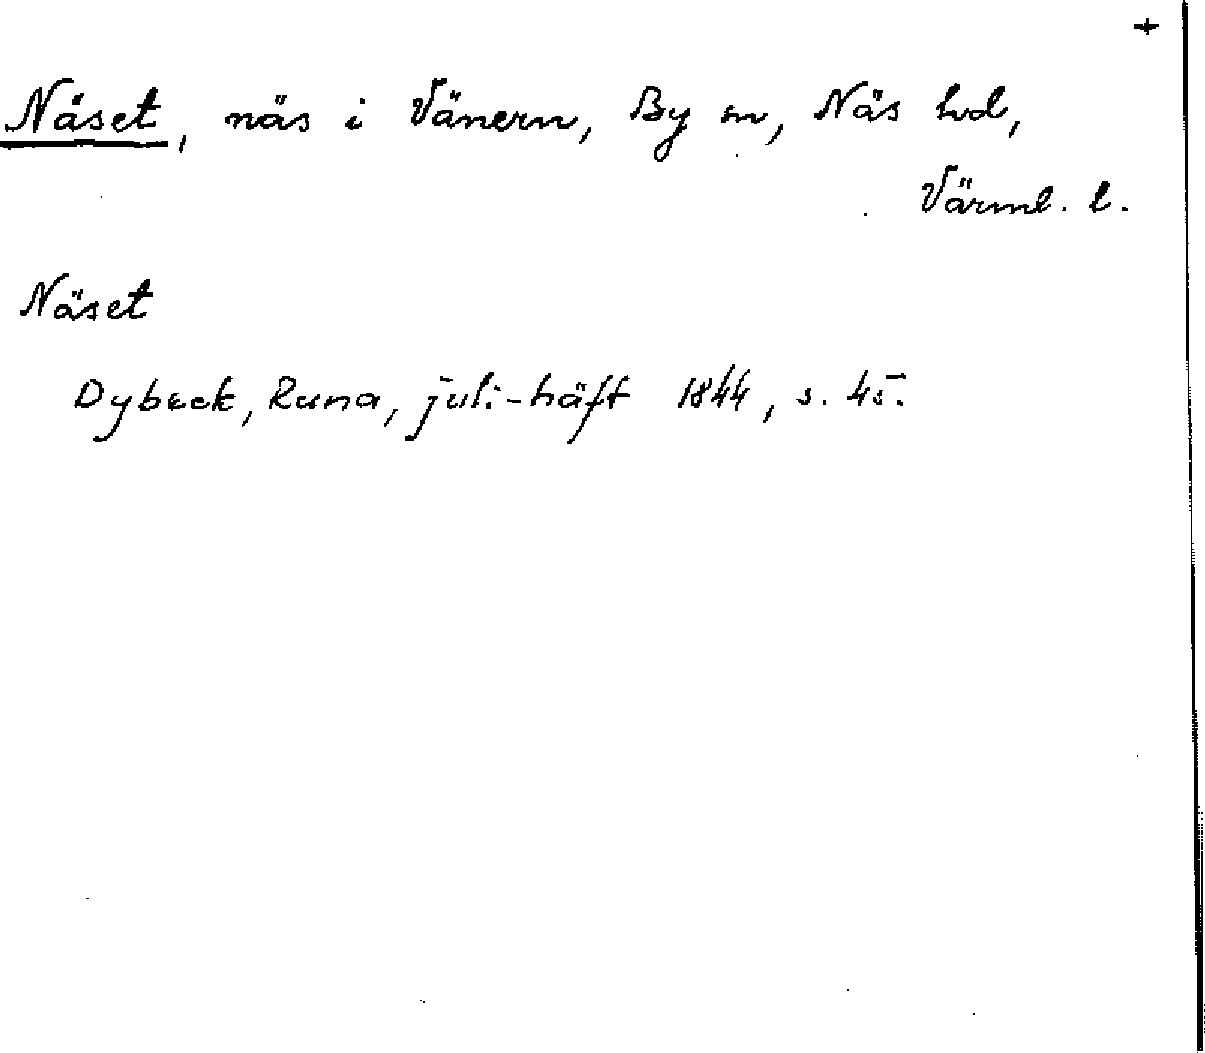 +
Näset, näs i Vänern, By sn, Näs hd,
Värml. l.
Näset
Dybeck, Runa, juli-häft 1844, s. 45.